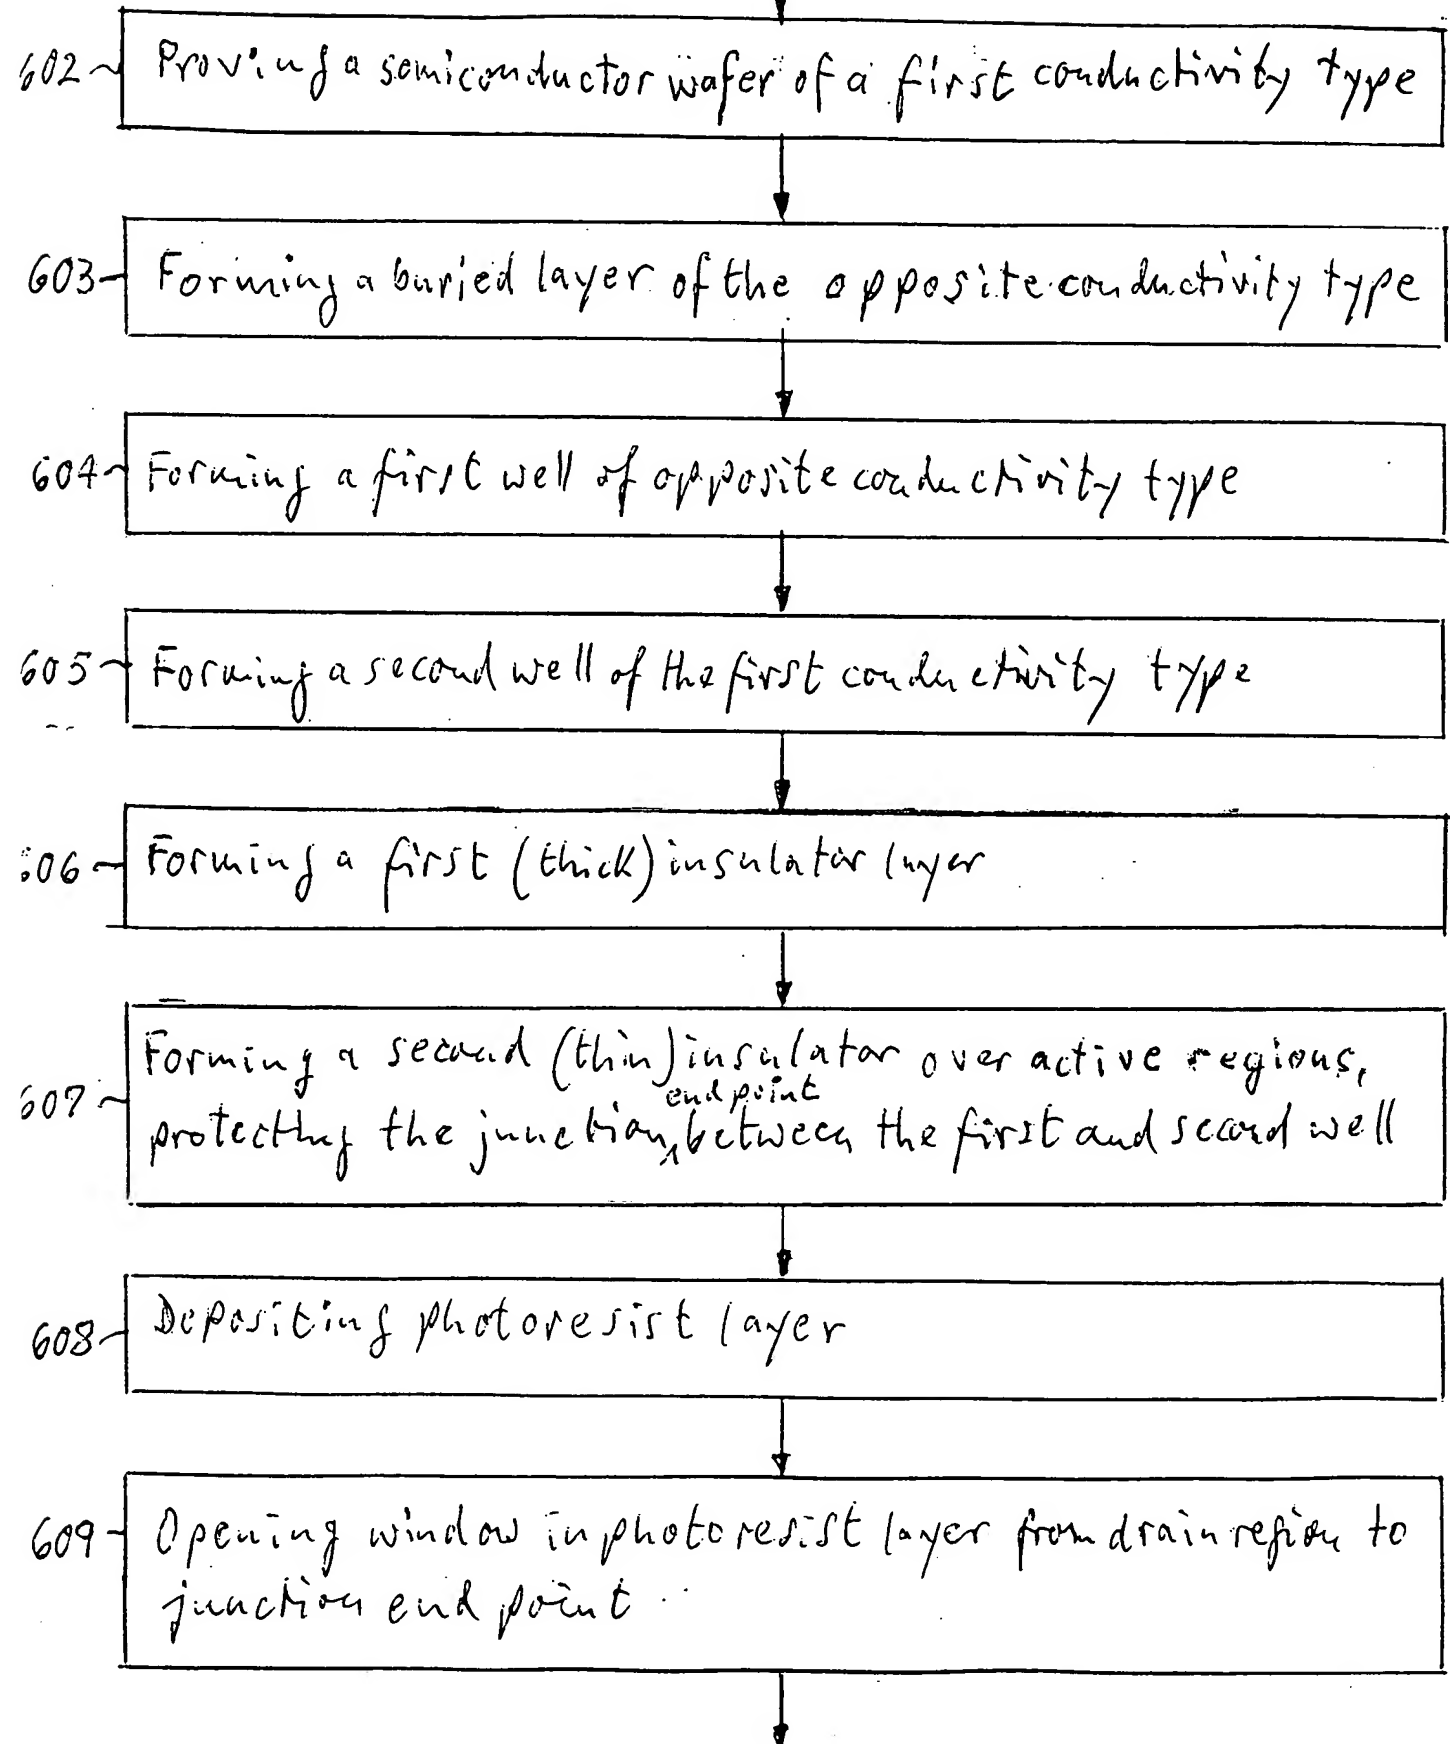 602 Proving a semiconductor wafer of a first conductivity type
603 Forming a buried layer of the opposite conductivity type
604 Forming a first well of opposite conductivity type
605 Forming a second well of the first conductivity type
606 Forming a first (thick) insulator layer
607 Forming a second (thin) insulator over active regions,
end point
protecting the junction between the first and second well
608 Depositing photoresist layer
609 Opening window in photoresist layer from drain region to
junction end point